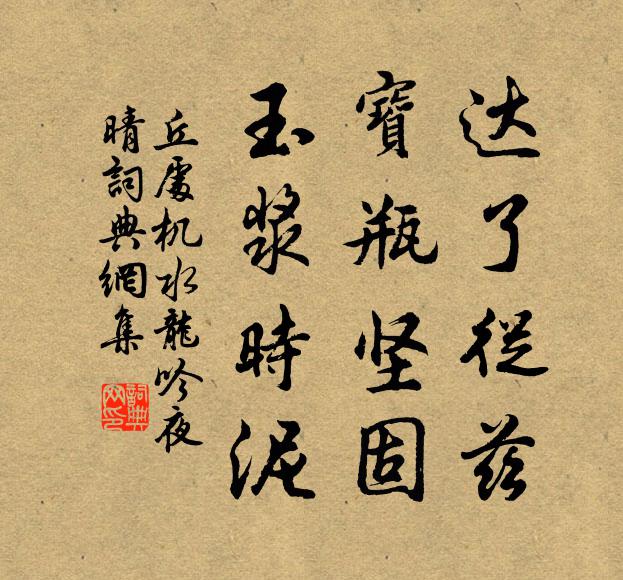 达了從茲
寶瓶坚固
玉漿時泥
丘處机水龍吟夜
晴詞典網集
詞典網印